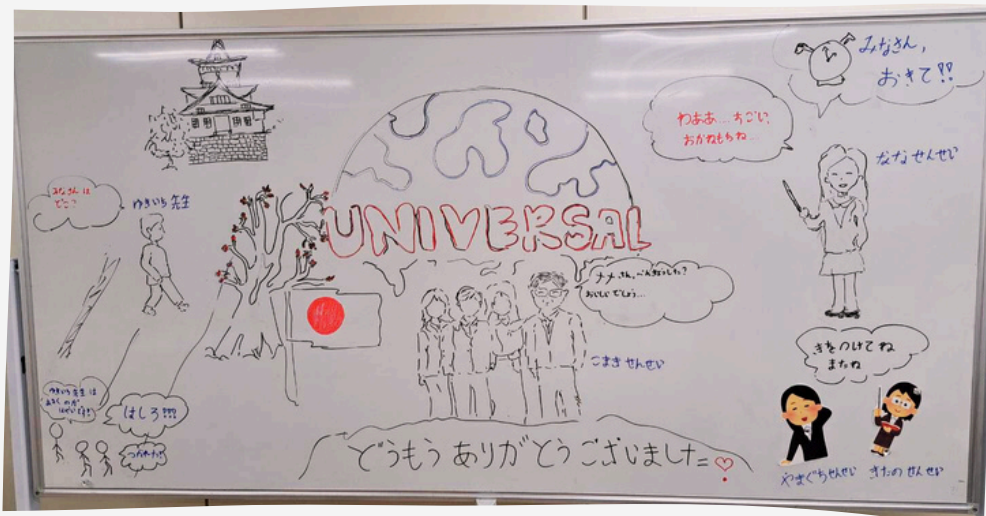 みなさん,
おきて!!
わああ...ちごい,
おかねもちね...
ななせんせい
みなさん は
どこ?
ゆきいち 先生
UNIVERSAL
おいしいでしょう...
こまきせんせい
きをつけてね
またね
ゆきいち先生は
はしろ!!!
つかれた!!
どうもうありがとうございました=
やまぐちせんせい
きたのせんせい